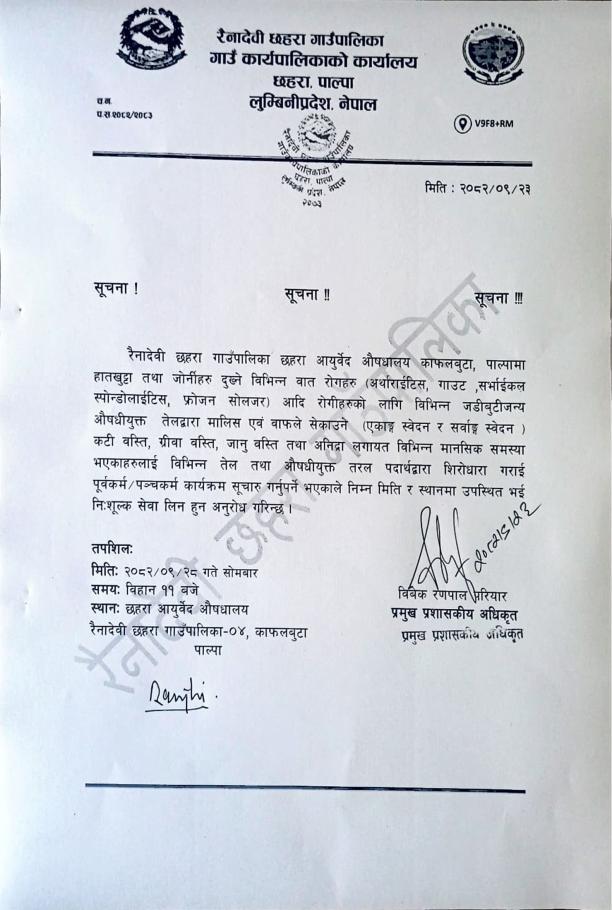 रैनादेवी छहरा गाउँपालिका
गाउँ कार्यपालिकाको कार्यालय
छहरा, पाल्पा
लुम्बिनीप्रदेश, नेपाल
च.न.
प.स.२०८२/२०८३
V9F8+RM
रैनादेवी छहरा गाउँपालिका
गाउँ कार्यपालिकाको कार्यालय
छहरा, पाल्पा
लुम्बिनी प्रदेश, नेपाल
२०७३
मिति : २०८२/०९/२३
सूचना !
सूचना !!
सूचना !!!
रैनादेवी छहरा गाउँपालिका छहरा आयुर्वेद औषधालय काफलबुटा, पाल्पामा
हातखुट्टा तथा जोर्नीहरु दुख्ने विभिन्न बात रोगहरु (अर्थाराईटिस, गाउट ,सर्भाईकल
स्पोन्डोलाईटिस, फ्रोजन सोलजर) आदि रोगीहरुको लागि विभिन्न जडीबुटीजन्य
औषधीयुक्त तेलद्वारा मालिस एवं वाफले सेकाउने (एकाङ्ग स्वेदन र सर्वाङ्ग स्वेदन )
कटी वस्ति, ग्रीवा वस्ति, जानु वस्ति तथा अनिद्रा लगायत विभिन्न मानसिक समस्या
भएकाहरुलाई विभिन्न तेल तथा औषधीयुक्त तरल पदार्थद्वारा शिरोधारा गराई
पूर्वकर्म/पञ्चकर्म कार्यक्रम सूचारु गर्नुपर्ने भएकाले निम्न मिति र स्थानमा उपस्थित भई
नि:शूल्क सेवा लिन हुन अनुरोध गरिन्छ ।
तपशिल:
मिति: २०८२/०९/२८ गते सोमबार
समय: विहान ११ बजे
स्थान: छहरा आयुर्वेद औषधालय
रैनादेवी छहरा गाउँपालिका-०४, काफलबुटा
पाल्पा
विवेक रणपाल परियार
प्रमुख प्रशासकीय अधिकृत
प्रमुख प्रशासकीय अधिकृत
रैनादेवी छहरा गाउँपालिका